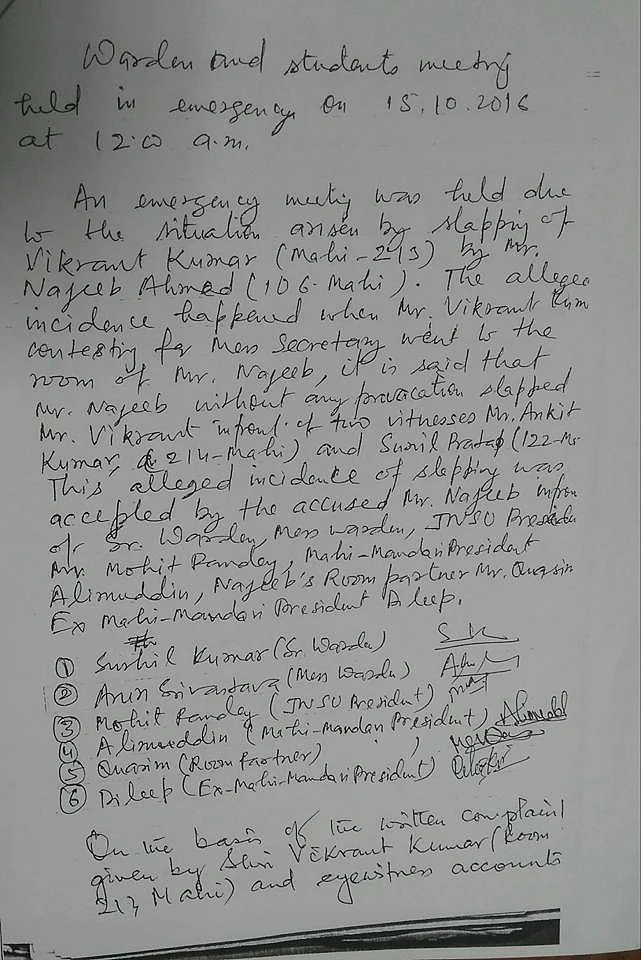 Warden and students meeting
held in emergency on 15.10.2016
at 12.00 a.m.
An emergency meeting was held due
to the situation arisen by slapping of
Vikrant Kumar (Mahi-213) by Mr.
Najeeb Ahmed (106-Mahi). The alleged
incidence happened when Mr. Vikrant Kum
contesting for Mess Secretary went to the
room of Mr. Najeeb, it is said that
Mr. Najeeb without any provacation slapped
Mr. Vikrant infront of two vitnesses Mr. Ankit
Kumar, 214-Mahi) and Sunil Pratap (122-M
This alleged incidence of slapping was
accepted by the accused Mr. Najeeb infron
of Sr. Warden, Mess warden, JNSU Preside
Mr. Mohit Panday, Mahi-Mandavi President
Alimuddin, Najeeb's Room partner Mr. Quasim
Ex Mahi-Mandavi President Dileep.
① Sushil Kumar (Sr. Warden) SK
② Arun Srivastava (Mess Warden)
③ Mohit Panday (JNSU President)
④ Alimueddin (Mahi-Mandavi President)
⑤ Quasim (Room Partner)
⑥ Dileep (Ex-Mahi-Mandavi President)
On the basis of the written complaint
given by Shri Vikrant Kumar (Room
213 Mahi) and eyewitness accounts